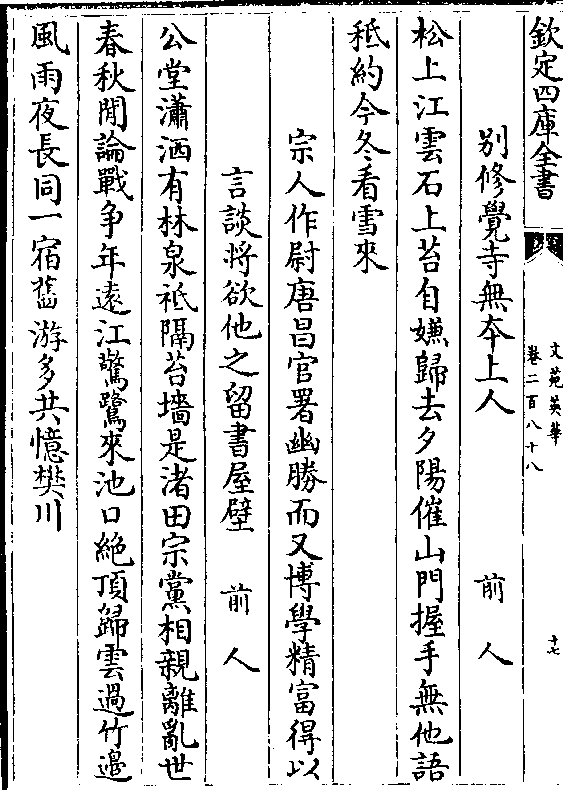 欽定四庫全書
文苑英華
卷二百八十八
十七
別修覺寺無夲上人　前人
松上江雲石上苔自嫌歸去夕陽催山門握手無他語
秪約今冬看雪來
宗人作尉唐昌官署幽勝而又博學精富得以
言談將欲他之留書屋壁　前人
公堂瀟洒有林泉祗隔苔墻是渚田宗黨相親離亂世
春秋閒論戰争年遠江驚鷺來池口絶頂歸雲過竹邉
風雨夜長同一宿舊游多共憶樊川